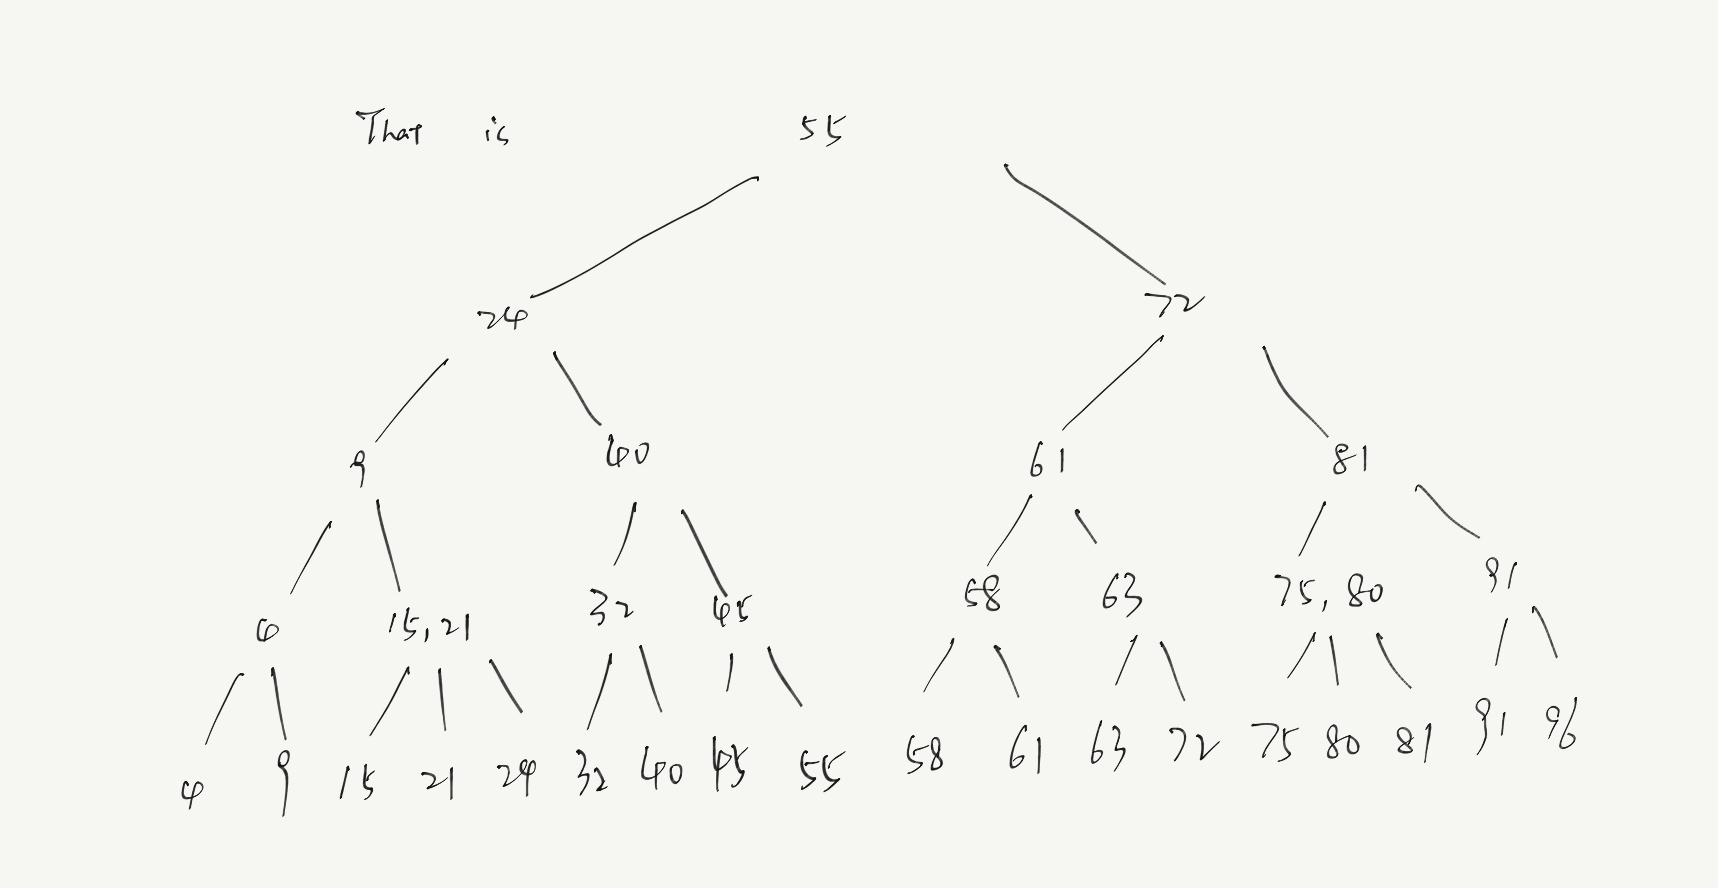 That is 55
24 72
9 40 61 81
4 15,21 32 45 58 63 75,80 91
4 9 15 21 24 32 40 45 55 58 61 63 72 75 80 81 91 96